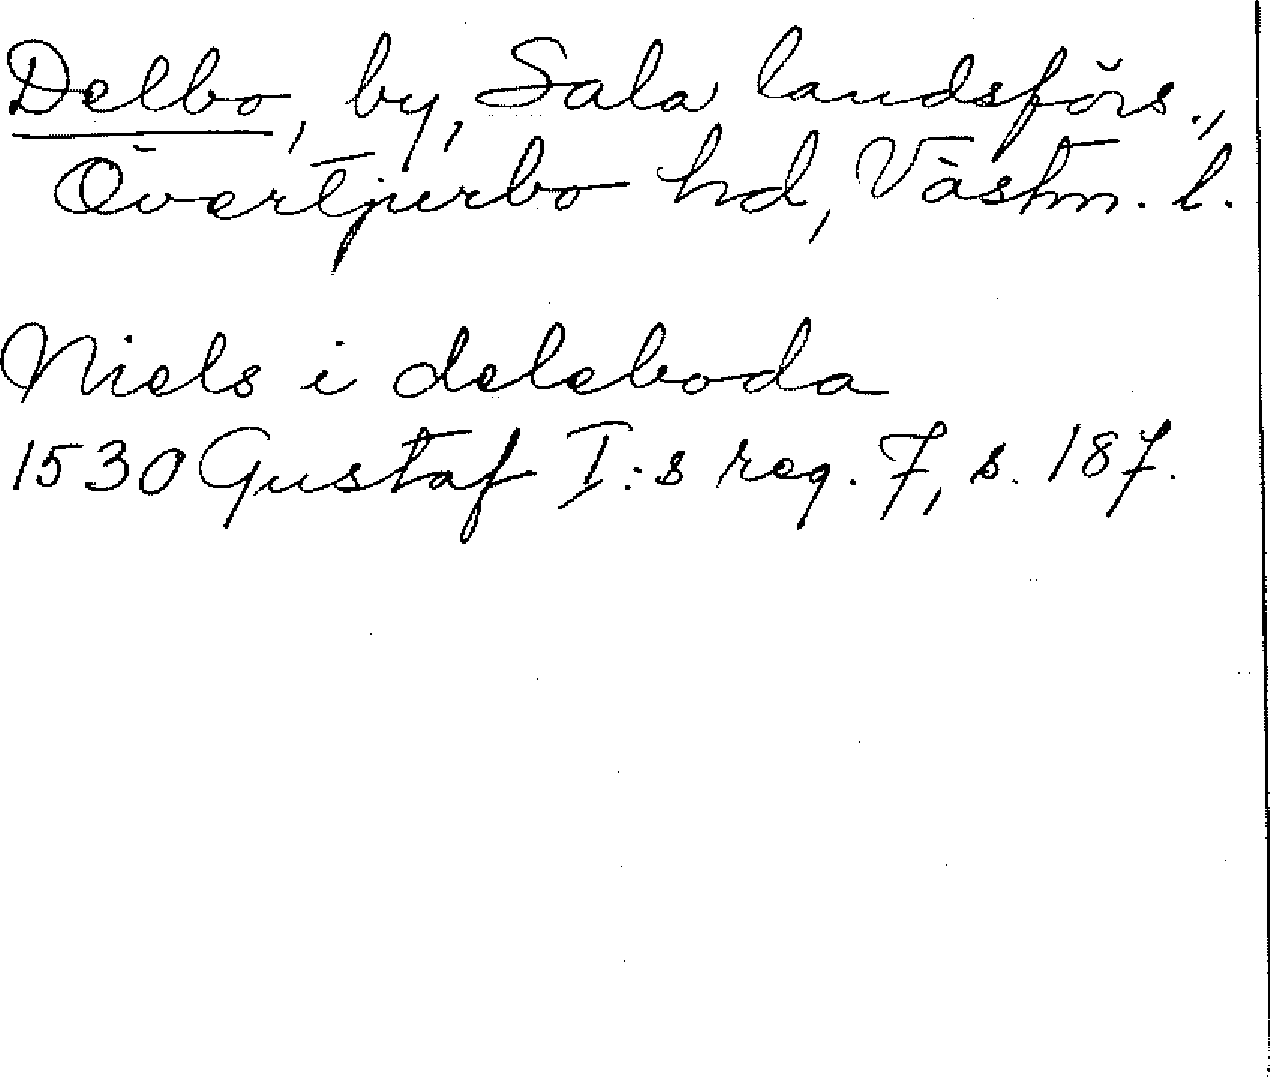 Delbo, by, Sala landsförs.,
Övertjurbo hd, Västm. l.
Niels i deleboda
1530 Gustaf I:s reg. 7, s. 187.